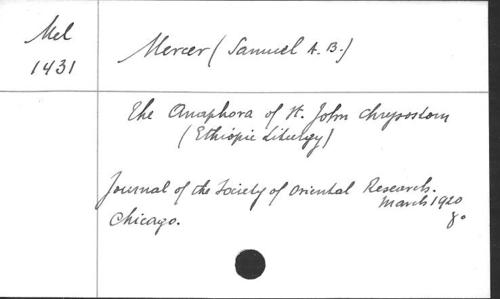 Mel
1431
Mercer (Samuel A. B.)
The Anaphora of St. John Chrysostom
(Ethiopic Liturgy)
Journal of the Society of Oriental Research.
March 1920
Chicago. 8°